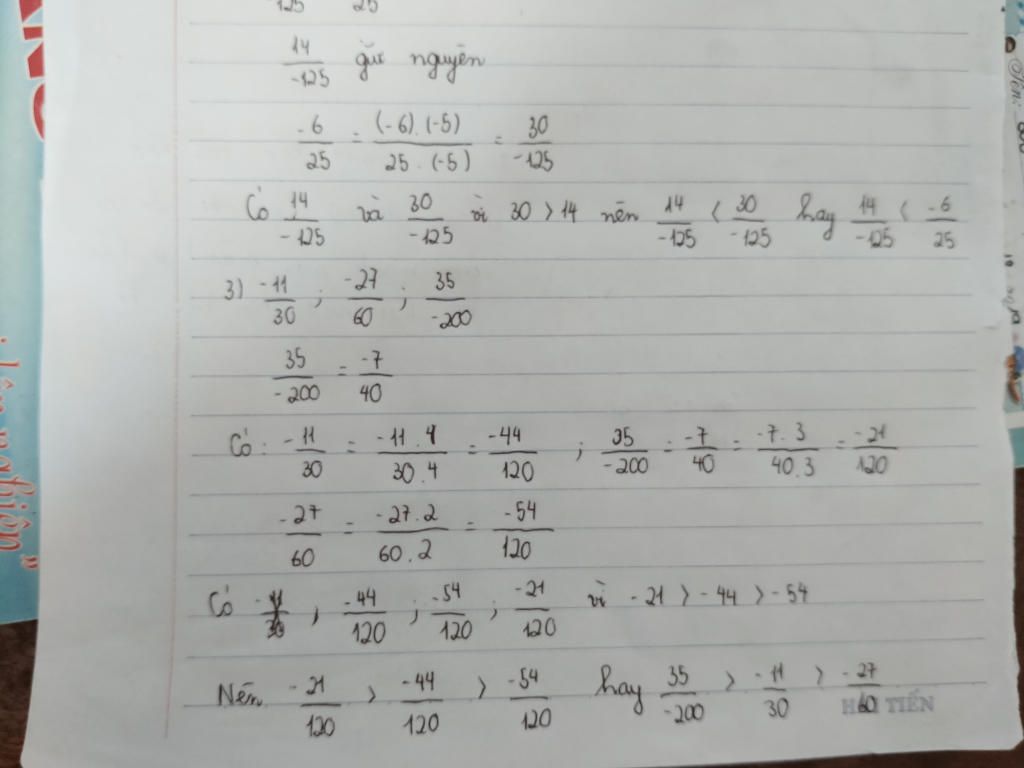 125 25
14/-125 giữ nguyên
-6/25 = (-6).(-5)/25.(-5) = 30/-125
Có 14/-125 và 30/-125 vì 30 > 14 nên 14/-125 < 30/-125 hay 14/-125 < -6/25
3) -11/30 ; -27/60 ; 35/-200
35/-200 = -7/40
Có : -11/30 = -11.4/30.4 = -44/120 ; 35/-200 = -7/40 = -7.3/40.3 = -21/120
-27/60 = -27.2/60.2 = -54/120
Có -11/30 , -44/120 ; -54/120 ; -21/120 vì -21 > -44 > -54
Nên -21/120 > -44/120 > -54/120 hay 35/-200 > -11/30 > -27/60
HẢI TIẾN